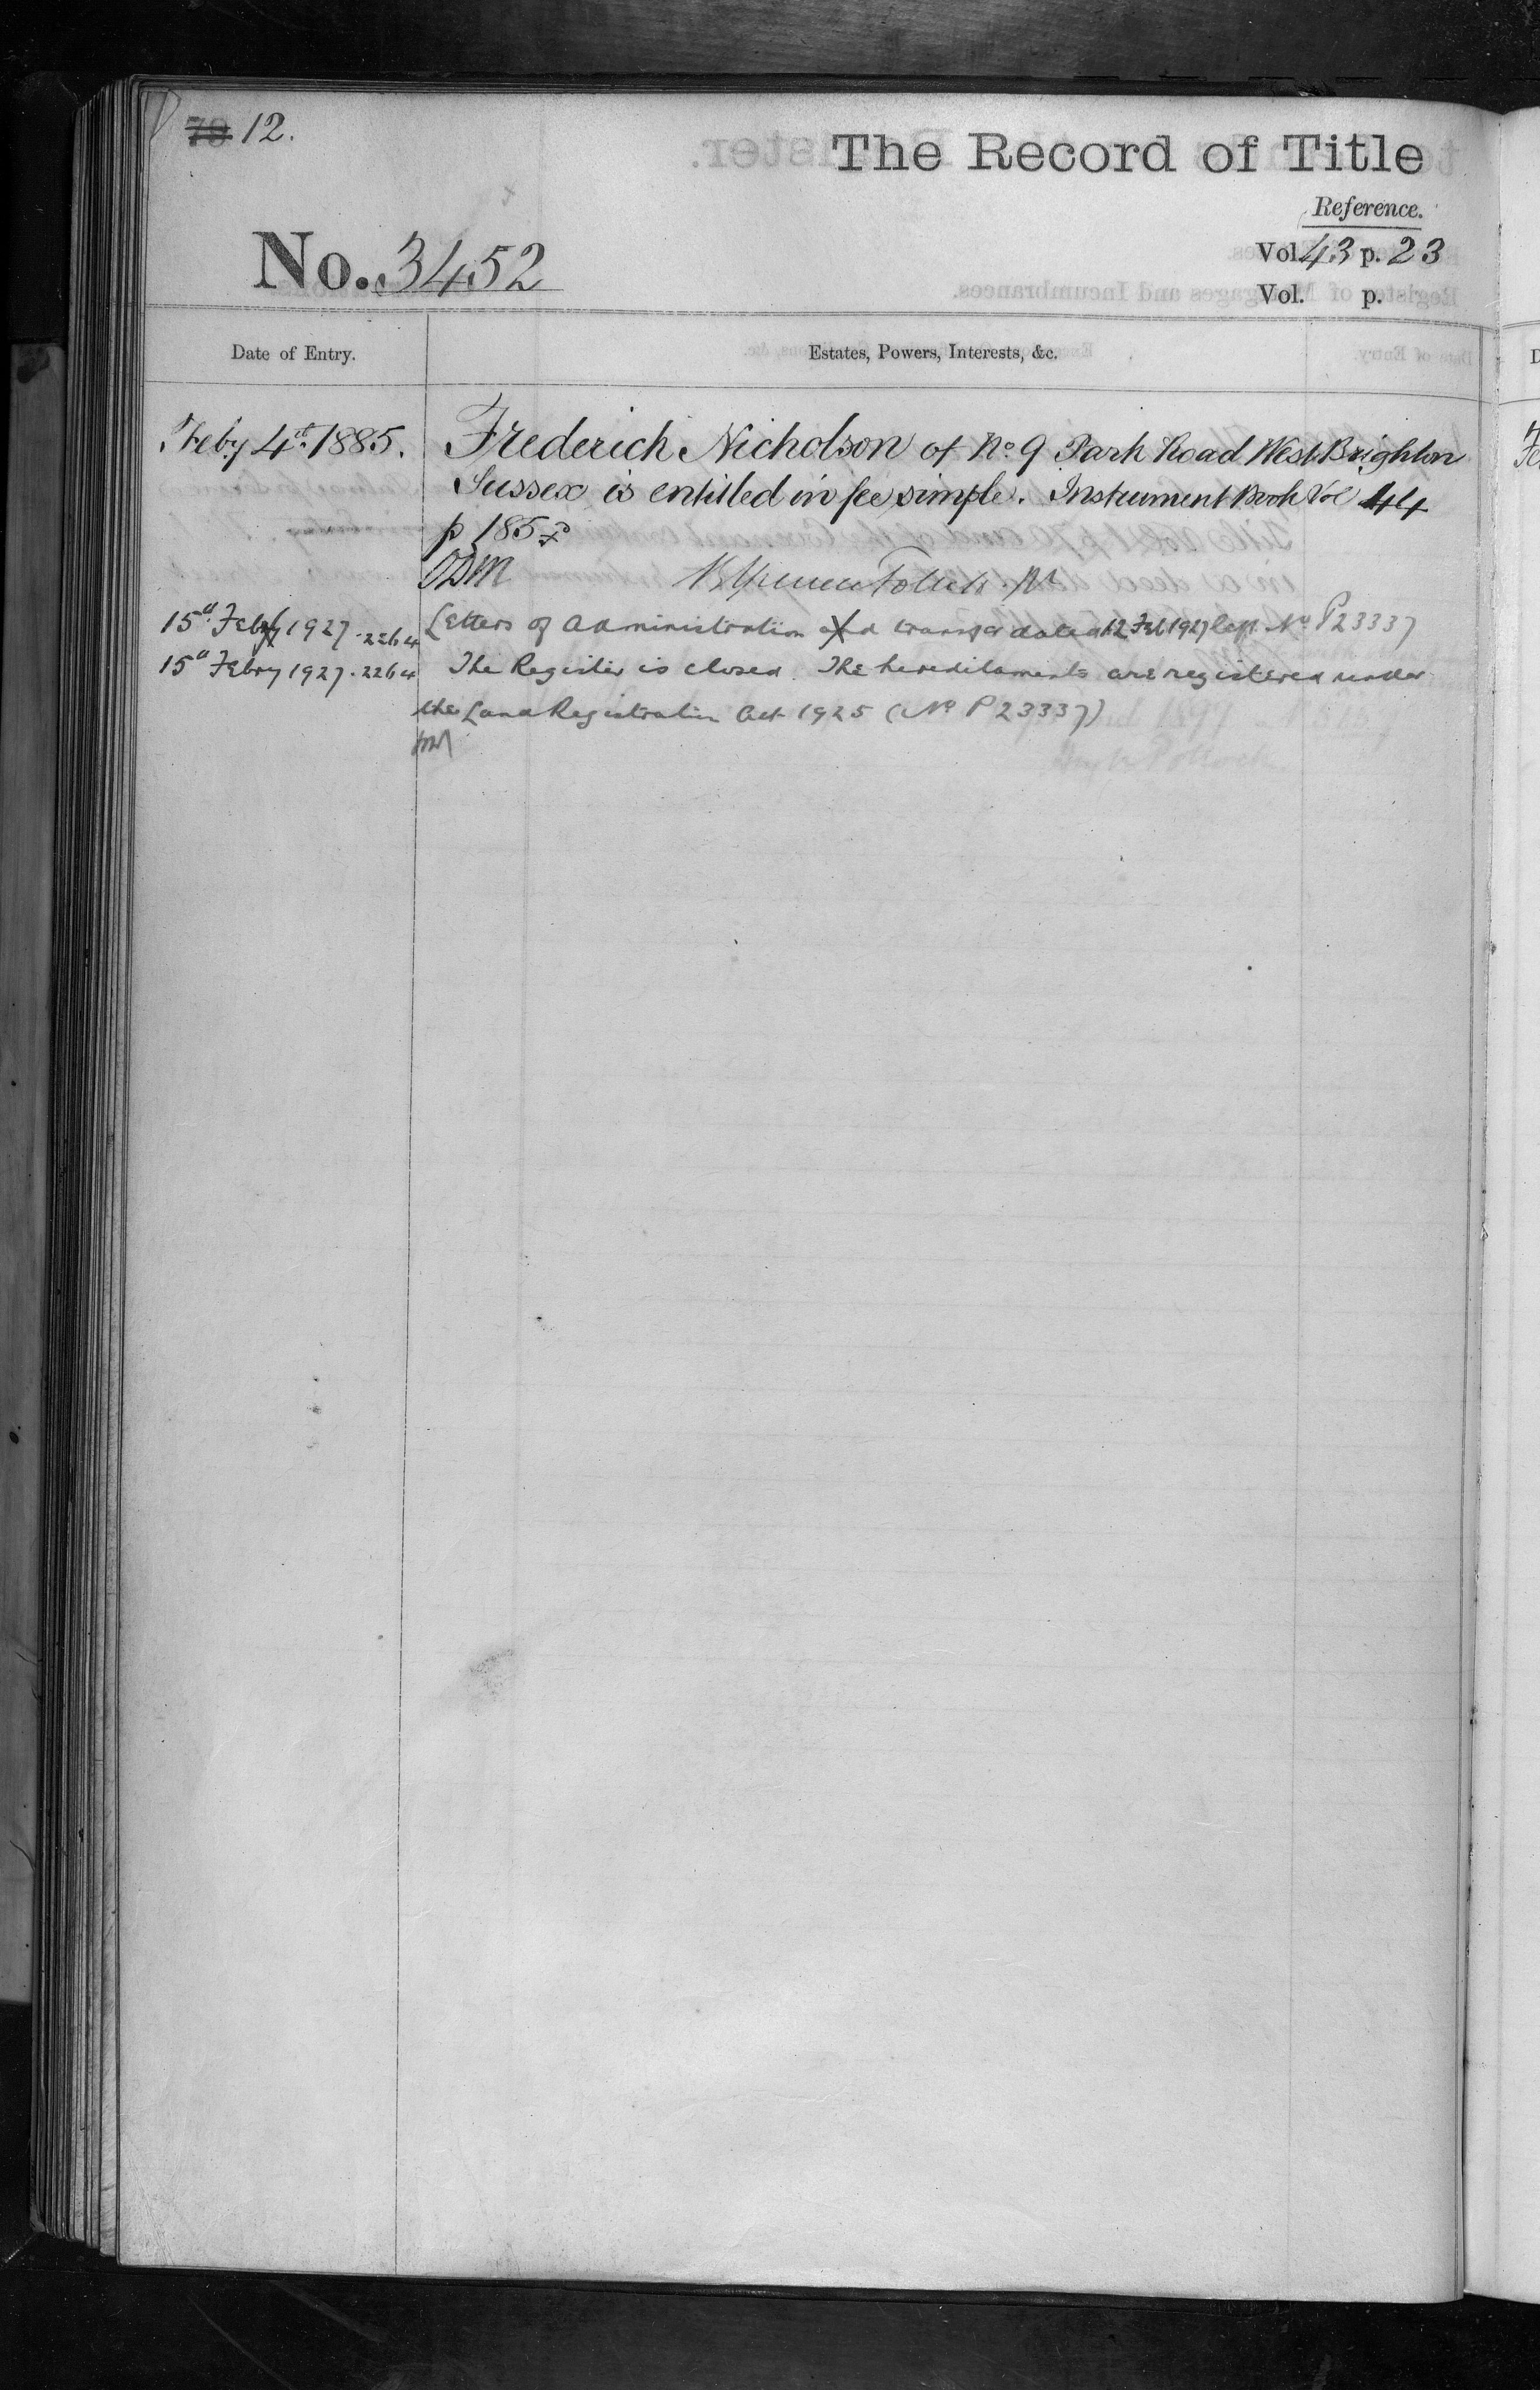 70 12.
The Record of Title
Reference.
No. 3452
Vol. 43 p. 23
Vol. p.
Date of Entry.
Estates, Powers, Interests, &c.
Feby 4th 1885.
Frederich Nicholson of No 9 Park Road West Brighton
Sussex is entitled in fee simple. Instrument Book Vol 44
p 185
15th Febry 1927. 2264
Letters of Administration and transfer dated 12 Feb 1927 No P23337
15th Febry 1927. 2264
The Register is closed. The hereditaments are registered under
the Land Registration Act 1925 (No P 23337)